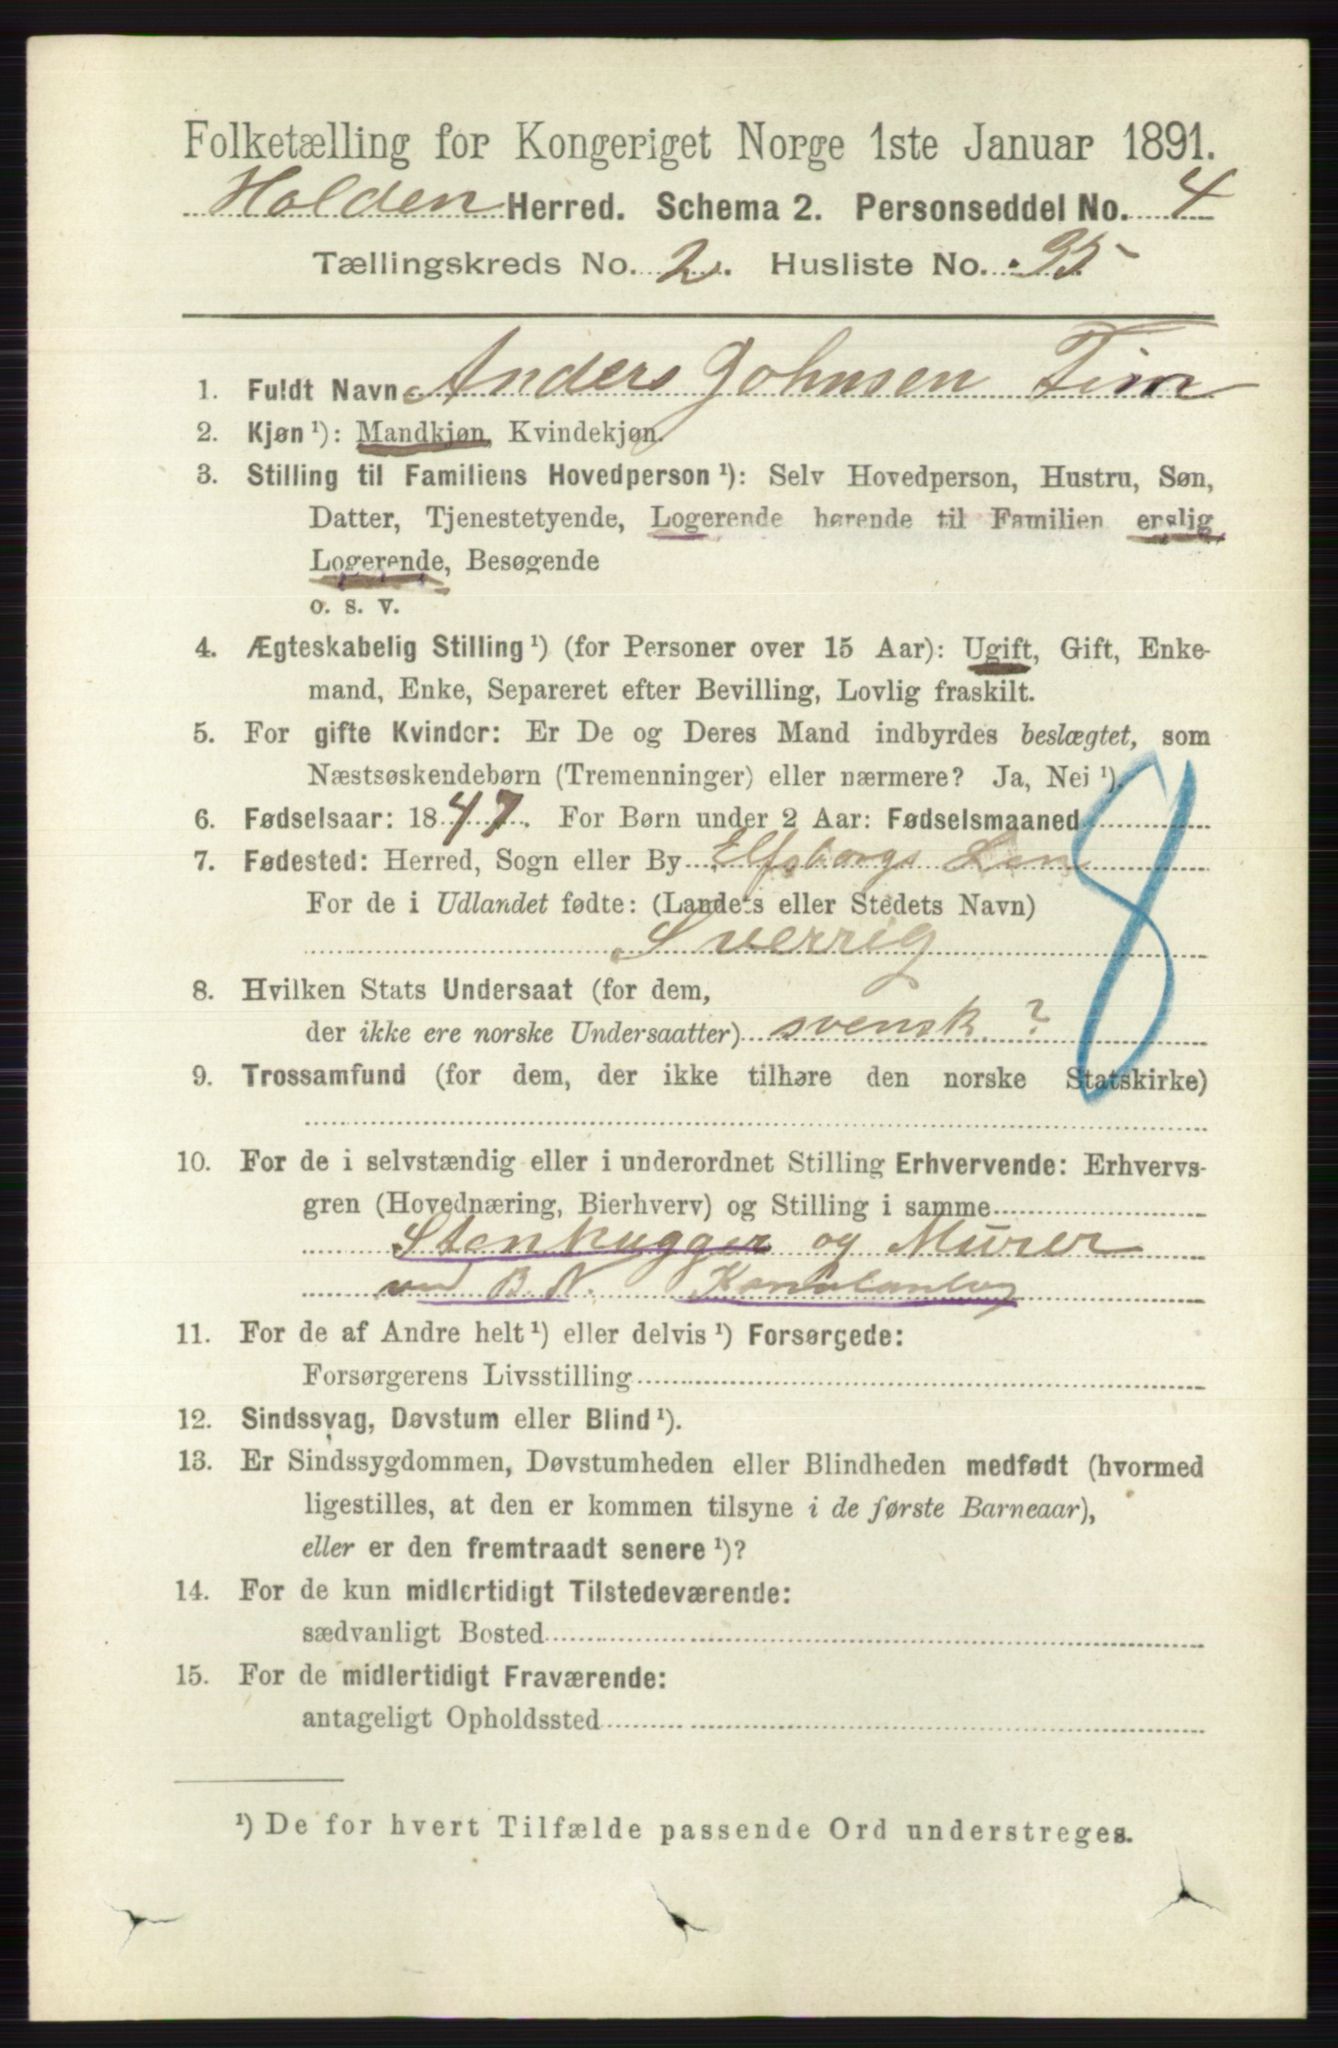 Folketælling for Kongeriget Norge 1ste Januar 1891.
Holden Herred. Schema 2. Personseddel No. 4
Tællingskreds No. 2. Husliste No. 35
1. Fuldt Navn Anders Johnsen Tim
2. Kjøn ¹): Mandkjøn, Kvindekjøn.
3. Stilling til Familiens Hovedperson ¹): Selv Hovedperson, Hustru, Søn,
Datter, Tjenestetyende, Logerende hørende til Familien enslig
Logerende, Besøgende
o. s. v.
4. Ægteskabelig Stilling ¹) (for Personer over 15 Aar): Ugift, Gift, Enke-
mand, Enke, Separeret efter Bevilling, Lovlig fraskilt.
5. For gifte Kvinder: Er De og Deres Mand indbyrdes beslægtet, som
Næstsøskendebørn (Tremenninger) eller nærmere? Ja, Nei ¹).
6. Fødselsaar: 1847. For Børn under 2 Aar: Fødselsmaaned
7. Fødested: Herred, Sogn eller By Elfsborgs Len
For de i Udlandet fødte: (Landets eller Stedets Navn)
Sverrig
8. Hvilken Stats Undersaat (for dem,
der ikke ere norske Undersaatter) svensk. ?
8
9. Trossamfund (for dem, der ikke tilhøre den norske Statskirke)
10. For de i selvstændig eller i underordnet Stilling Erhvervende: Erhvervs-
gren (Hovednæring, Bierhverv) og Stilling i samme
Stenhugger og Murer
ved B. N. Kanalanlæg
11. For de af Andre helt ¹) eller delvis ¹) Forsørgede:
Forsørgerens Livsstilling
12. Sindssvag, Døvstum eller Blind ¹).
13. Er Sindssygdommen, Døvstumheden eller Blindheden medfødt (hvormed
ligestilles, at den er kommen tilsyne i de første Barneaar),
eller er den fremtraadt senere ¹)?
14. For de kun midlertidigt Tilstedeværende:
sædvanligt Bosted
15. For de midlertidigt Fraværende:
antageligt Opholdssted
¹) De for hvert Tilfælde passende Ord understreges.